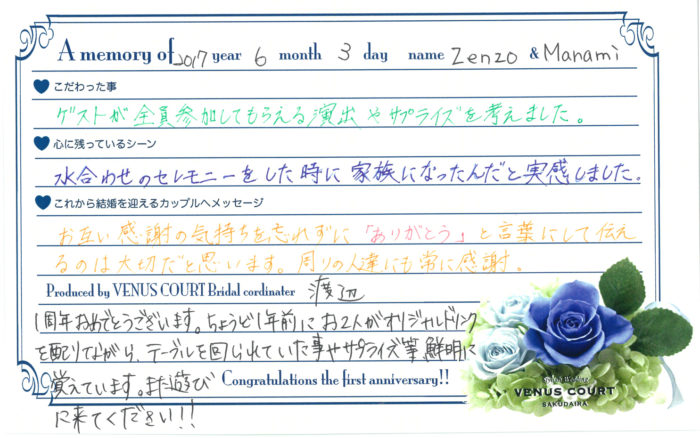 A memory of 2017 year 6 month 3 day name Zenzo & Manami
こだわった事
ゲストが全員参加してもらえる演出やサプライズを考えました。
心に残っているシーン
水合わせのセレモニーをした時に家族になったんだと実感しました。
これから結婚を迎えるカップルへメッセージ
お互い感謝の気持ちを忘れずに「ありがとう」と言葉にして伝え
るのは大切だと思います。周りの人達にも常に感謝。
Produced by VENUS COURT Bridal cordinater 渡辺
1周年おめでとうございます。ちょうど1年前にお2人がオリジャルドリンク
を配りながら、テーブルを回られていた事やサプライズ等、鮮明に
覚えています。また遊び Congratulations the first anniversary!!
に来てください!!
VENUS COURT
SAKUDAIRA